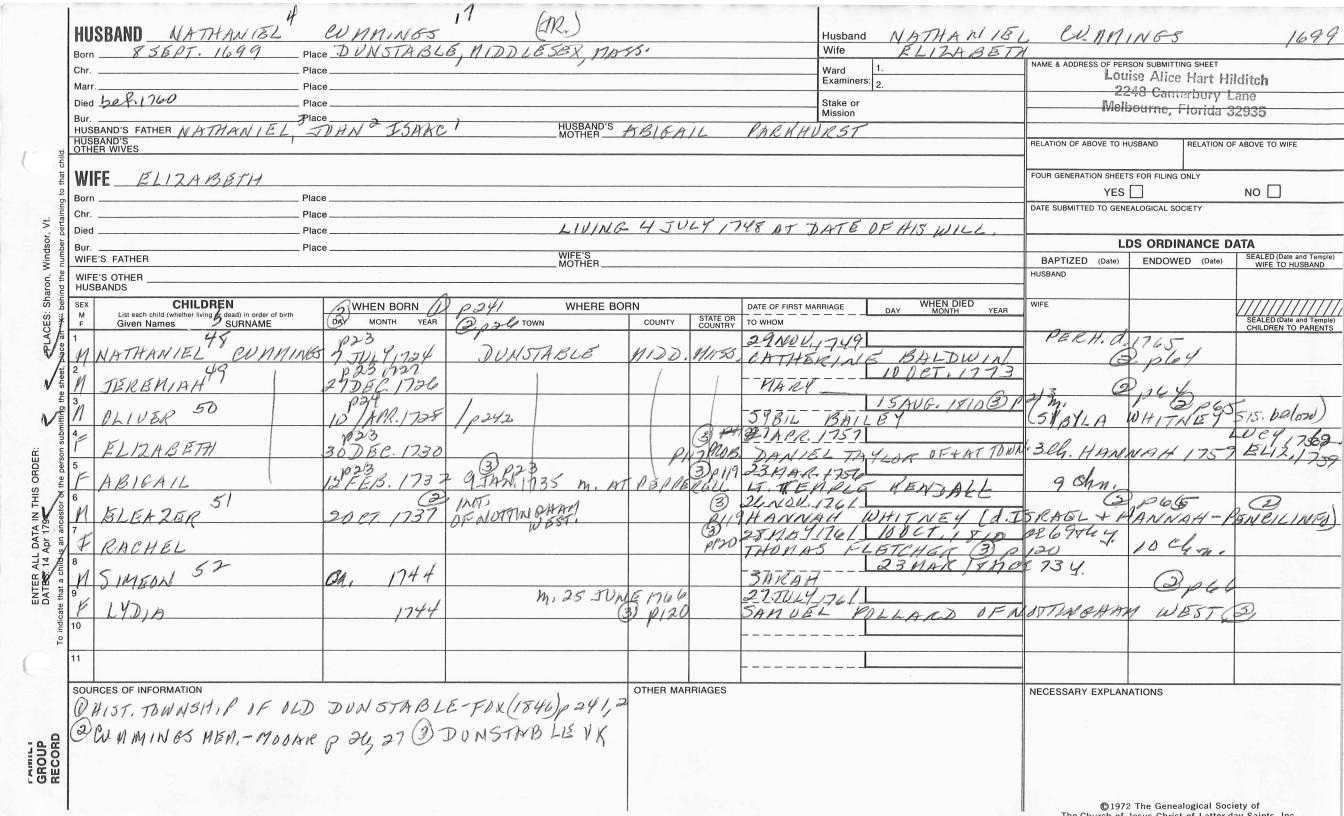 HUSBAND NATHANIEL 4 CUMMINGS 17 (JR.)
Born 8 SEPT. 1699 Place DUNSTABLE, MIDDLESEX, MASS.
Chr. Place
Marr. Place
Died bef. 1760 Place
Bur. Place
HUSBAND'S FATHER NATHANIEL 3, JOHN 2 ISAAC 1 HUSBAND'S MOTHER ABIGAIL PARKHURST
HUSBAND'S OTHER WIVES
Husband NATHANIEL CUMMINGS 1699
Wife ELIZABETH
Ward Examiners: 1.
2.
Stake or Mission
NAME & ADDRESS OF PERSON SUBMITTING SHEET
Louise Alice Hart Hilditch
2248 Canterbury Lane
Melbourne, Florida 32935
RELATION OF ABOVE TO HUSBAND RELATION OF ABOVE TO WIFE
FOUR GENERATION SHEETS FOR FILING ONLY
YES NO
DATE SUBMITTED TO GENEALOGICAL SOCIETY
WIFE ELIZABETH
Born Place
Chr. Place
Died Place LIVING 4 JULY 1748 AT DATE OF HIS WILL.
Bur. Place
WIFE'S FATHER WIFE'S MOTHER
WIFE'S OTHER HUSBANDS
LDS ORDINANCE DATA
BAPTIZED (Date) ENDOWED (Date) SEALED (Date and Temple) WIFE TO HUSBAND
HUSBAND
WIFE
SEALED (Date and Temple) CHILDREN TO PARENTS
SEX M F
CHILDREN
List each child (whether living or dead) in order of birth
Given Names SURNAME
WHEN BORN
DAY MONTH YEAR
① p241
② p26
WHERE BORN
TOWN COUNTY STATE OR COUNTRY
DATE OF FIRST MARRIAGE
TO WHOM
WHEN DIED
DAY MONTH YEAR
1 M NATHANIEL 48 CUMMINGS p23 7 JULY, 1724 DUNSTABLE MIDD. MASS. 29 NOV. 1749 CATHERINE BALDWIN PERH. d. 1765 ② p64
2 M JEREMIAH 49 p23 1727 27 DEC. 1726 MARY 10 OCT. 1773 ② p64
3 M OLIVER 50 p24 10 APR. 1728 / p242 SYBIL BAILEY 15 AUG. 1810 ③ ② p65 (SYBYLA WHITNEY SIS. below)
4 F ELIZABETH p23 30 DEC. 1730 ③ 27 APR. 1757 DANIEL TAYLOR OF 3 ch. HANNAH 1757 ELIZ. 1759 LUCY
5 F ABIGAIL p23 12 FEB. 1732 ③ p23 9 JAN. 1735 m. AT PEPPERELL ③ p119 23 MAR. 1756 LT. TEMPLE KENDALL 9 Chn.
6 M ELEAZER 51 2 OCT. 1737 ② INT. OF NOTTINGHAM WEST. ③ p119 26 NOV. 1761 HANNAH WHITNEY (d. ISRAEL + HANNAH - PENCILINED) ② p65 ②
7 F RACHEL ③ p120 28 MAY 1761 THOMAS FLETCHER ③ p120 10 OCT. 1810 10 Chn.
8 M SIMEON 52 1744 SARAH 23 MAR ② p66
9 F LYDIA 1744 m. 25 JUNE 1766 ③ p120 27 JULY, 1761 SAMUEL POLLARD OF NOTTINGHAM WEST ③
10
11
SOURCES OF INFORMATION
① HIST. TOWNSHIP OF OLD DUNSTABLE-FOX (1846) p 241, 2
② CUMMINGS MEM.- MOOAR p 26, 27 ③ DUNSTABLE VR
OTHER MARRIAGES
NECESSARY EXPLANATIONS
©1972 The Genealogical Society of
The Church of Jesus Christ of Latter-day Saints, Inc.
ENTER ALL DATA IN THIS ORDER:
DATES: 14 Apr 179
PLACES: Sharon, Windsor, Vt.
To indicate that a child is an ancestor of the person submitting the sheet, place an behind the number pertaining to that child.
FAMILY GROUP RECORD